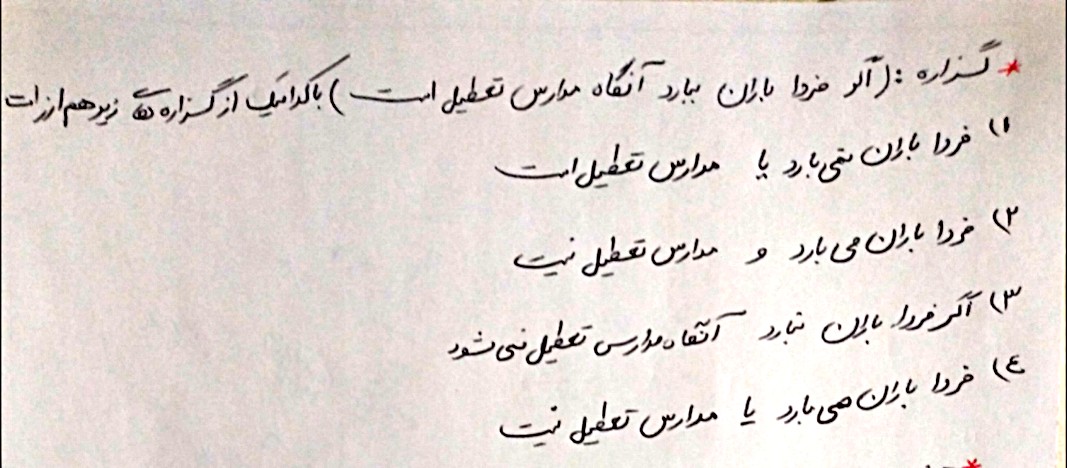 * گزاره : (اگر فردا باران ببارد آنگاه مدارس تعطیل است) با کدامیک از گزاره های زیر هم ارز است
۱) فردا باران نمی بارد یا مدارس تعطیل است
۲) فردا باران می بارد و مدارس تعطیل نیست
۳) اگر فردا باران نبارد آنگاه مدارس تعطیل نمی شود
۴) فردا باران می بارد یا مدارس تعطیل نیست